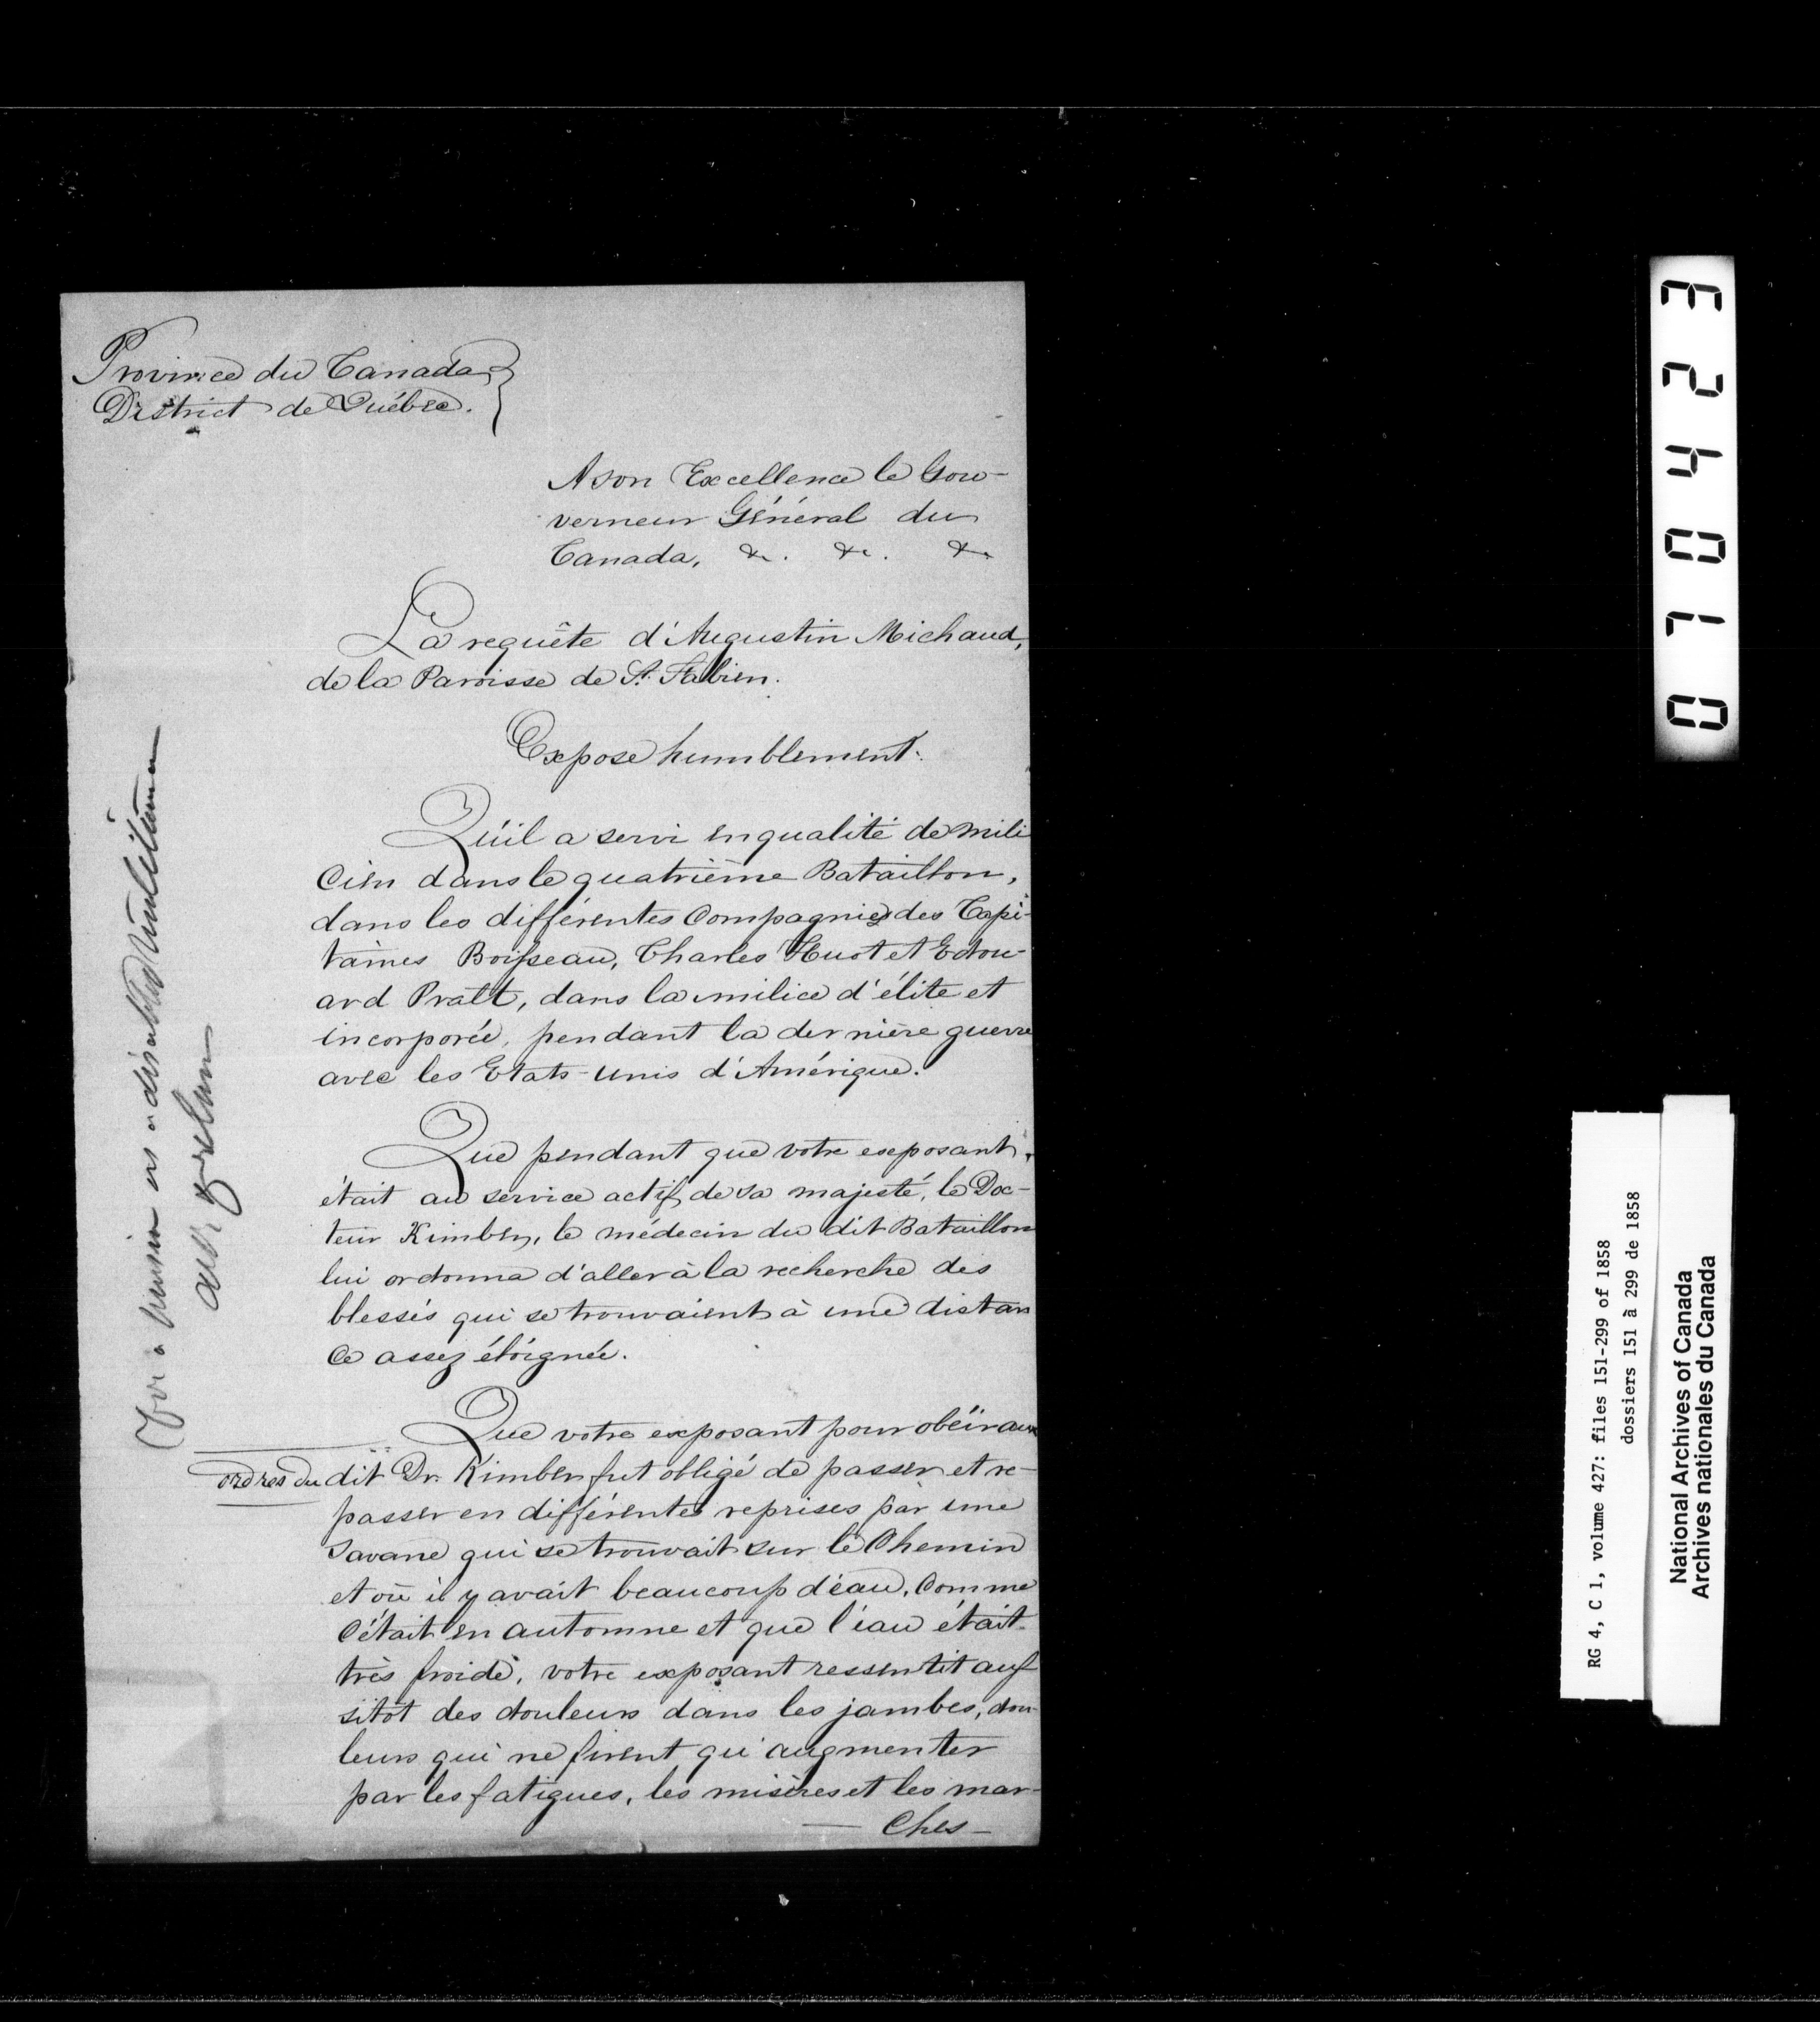 Province du Canada
District de Québec.
A son Excellence le Gou-
verneur Général du
Canada, &c. &c. &c
La requête d'Augustin Michaud,
de la Paroisse de St. Fabien.
Expose humblement.
Qu'il a servi en qualité de mili
cien dans le quatrième Bataillon,
dans les différentes Compagnies des Capi-
taines Boisseau, Charles Huot et Edou-
ard Pratt, dans la milice d'élite et
incorporée, pendant la dernière guerre
avec les Etats-Unis d'Amérique.
Que pendant que votre exposant,
était au service actif de sa majesté, le Doc-
teur Kimber, le médecin du dit Bataillon
lui ordonna d'aller à la recherche des
blessés qui se trouvaient à une distan
ce assez éloignée.
Que votre exposant pour obéir aux
ordres du dit Dr. Kimber fut obligé de passer et re-
passer en différentes reprises par une
savane qui se trouvait sur le chemin
et où il y avait beaucoup d'eau, Comme
c'était en automne et que l'eau était
très froide, votre exposant ressentit aus
sitôt des douleurs dans les jambes, dou-
leurs qui ne firent qu'augmenter
par les fatigues, les misères et les mar-
ches -
for a pension as a disabled
010423
RG 4, C 1, volume 427: files 151-299 of 1858
dossiers 151 à 299 de 1858
National Archives of Canada
Archives nationales du Canada